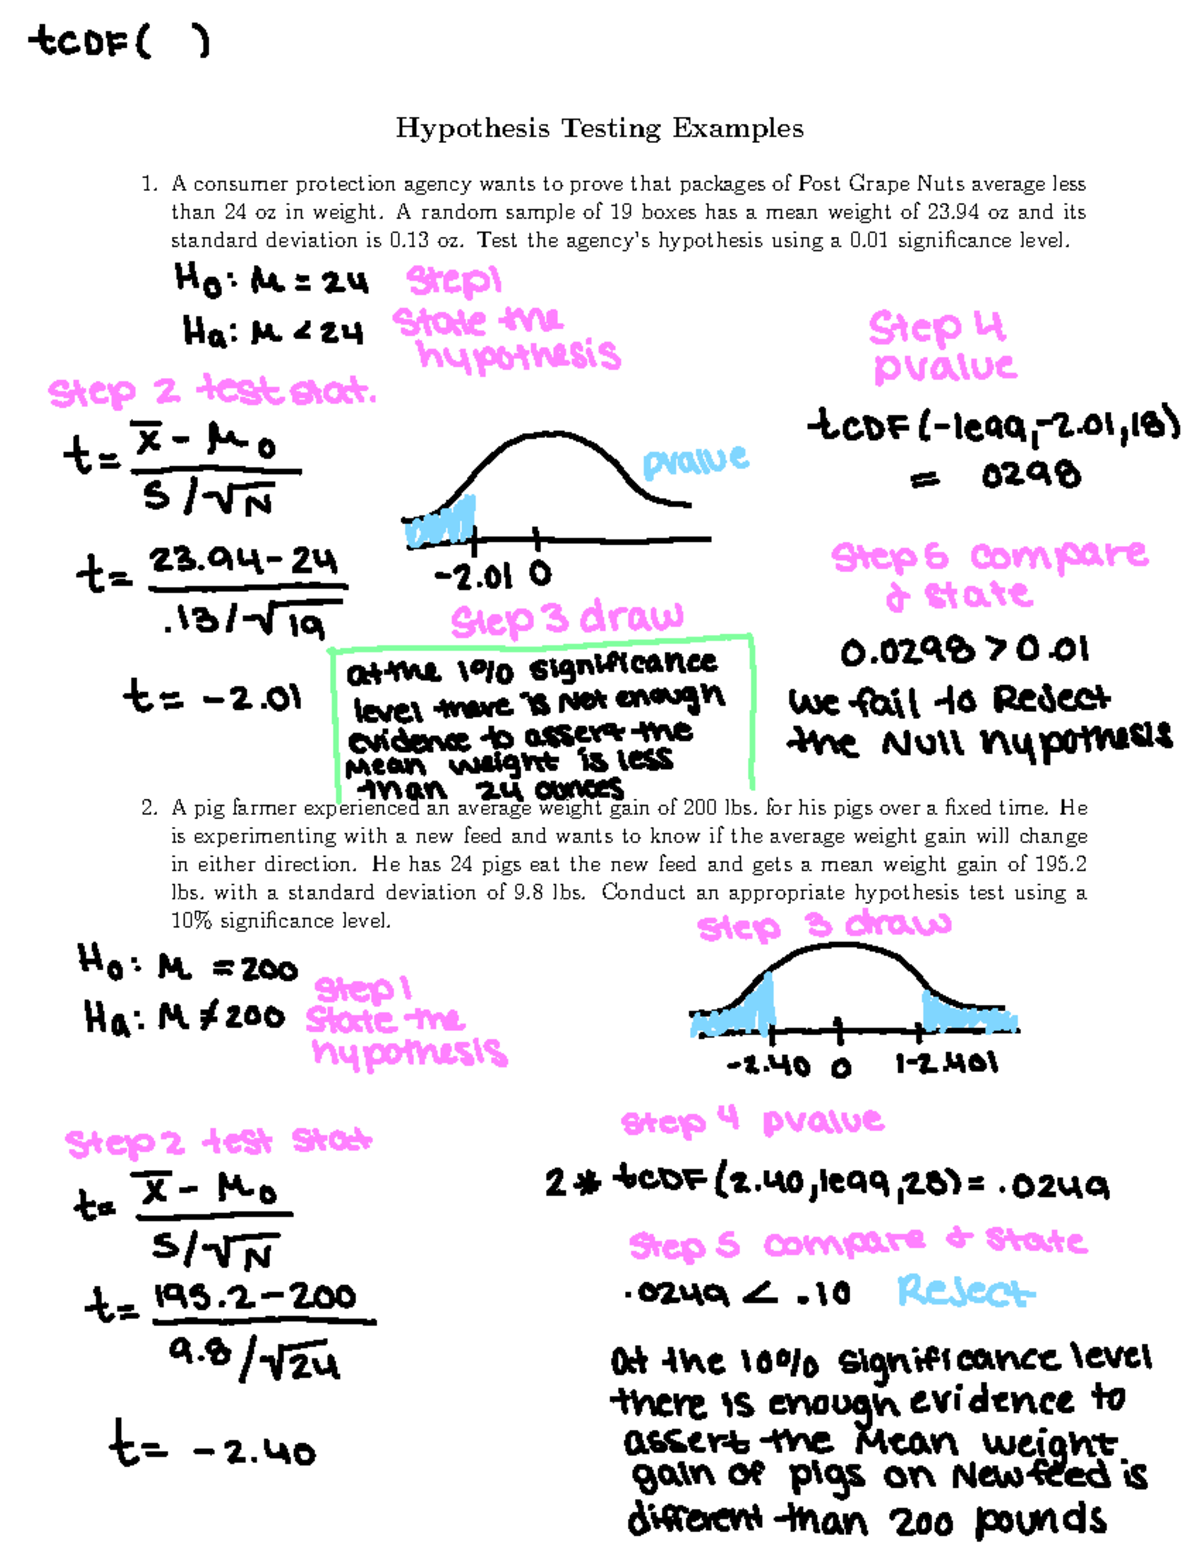 tCDF( )
Hypothesis Testing Examples
1. A consumer protection agency wants to prove that packages of Post Grape Nuts average less
than 24 oz in weight. A random sample of 19 boxes has a mean weight of 23.94 oz and its
standard deviation is 0.13 oz. Test the agency's hypothesis using a 0.01 significance level.
H₀: μ = 24 Step 1
Ha: μ < 24 State the
hypothesis
Step 2 test stat.
t = x̄ - μ₀
S/√N
t = 23.94 - 24
.13/√19
t = -2.01
pvalue
-2.01 0
Step 3 draw
Step 4
pvalue
tCDF(-1e99,-2.01,18)
= 0298
Step 5 compare
& state
0.0298 > 0.01
we fail to Reject
the Null hypothesis
at the 1% significance
level there is not enough
evidence to assert the
Mean weight is less
than 24 ounces
2. A pig farmer experienced an average weight gain of 200 lbs. for his pigs over a fixed time. He
is experimenting with a new feed and wants to know if the average weight gain will change
in either direction. He has 24 pigs eat the new feed and gets a mean weight gain of 195.2
lbs. with a standard deviation of 9.8 lbs. Conduct an appropriate hypothesis test using a
10% significance level.
H₀: μ = 200
Ha: μ ≠ 200
Step 1
State the
hypothesis
Step 2 test stat
t = x̄ - μ₀
S/√N
t = 195.2 - 200
9.8/√24
t = -2.40
Step 3 draw
-2.40 0 |-2.40|
Step 4 pvalue
2* tCDF(2.40,1e99,23) = .0249
Step 5 compare & state
.0249 < .10 Reject
at the 10% significance level
there is enough evidence to
assert the Mean weight
gain of pigs on New feed is
different than 200 pounds